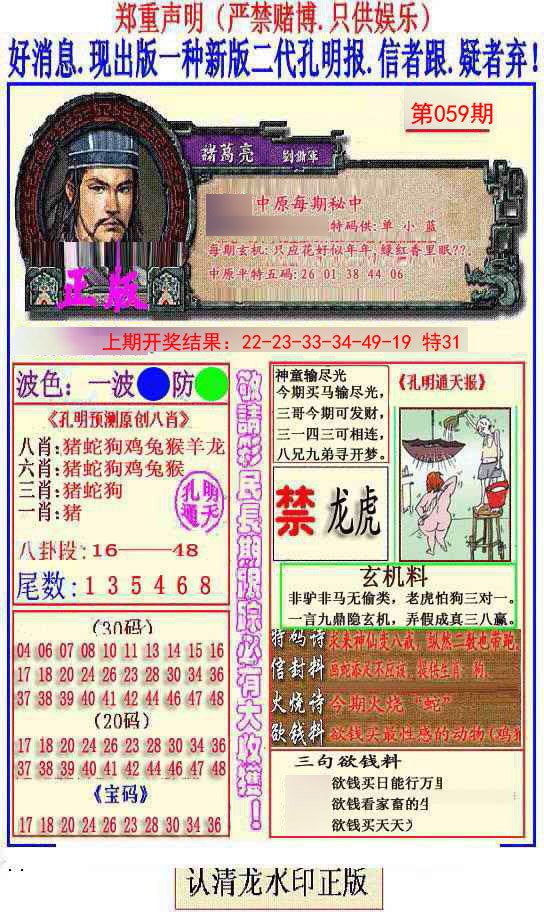 郑重声明（严禁赌博.只供娱乐）
好消息.现出版一种新版二代孔明报.信者跟.疑者弃!
第059期
諸葛亮
中原每期秘中
特码供:单 小 蓝
每期玄机:只应花好似年年,绿红香里眠??.
中原平特五码:26 01 38 44 06
正版
上期开奖结果：22-23-33-34-49-19 特31
波色：一波 防
《孔明预测原创八肖》
八肖:猪蛇狗鸡兔猴羊龙
六肖:猪蛇狗鸡兔猴
三肖:猪蛇狗
一肖:猪
孔明
通天
八卦段:16——48
尾数:135468
(30码)
04 06 07 08 10 11 13 14 15 16
17 18 20 24 26 23 28 30 34 36
37 38 39 40 41 42 44 46 47 48
(20码)
17 18 20 24 26 23 28 30 34 36
37 38 39 40 41 42 44 46 47 48
《宝码》
17 18 20 24 26 23 28 30 34 36
敬請彩民長期跟踪必有大收獲！
神童输尽光
今期买马输尽光,
三哥今期可发财,
三一四三可相连,
八兄九弟寻开梦。
《孔明通天报》
禁 龙虎
玄机料
非驴非马无偷类，老虎怕狗三对一。
一言九鼎隐玄机，弄假成真三八赢。
特码诗
信封料
火烧诗 今期火烧“蛇”
欲钱料 欲钱买最性感的动物(鸡猪
三句欲钱料
欲钱买日能行万里
欲钱看家畜的生
欲钱买天天
认清龙水印正版